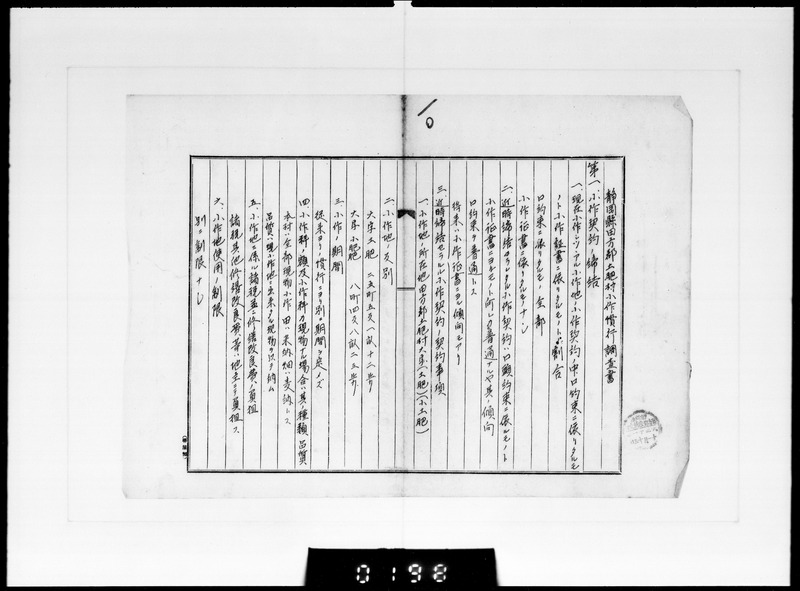 静岡縣田方郡土肥村小作慣行調査書
第一、小作契約ノ締結
一、現在小作シツヽアル小作地ノ小作契約ノ中口約束ニ依リタルモ
ノト小作証書ニ依リタルモノトノ割合
口約束ニ依リタルモノ 全部
小作証書ニ依リタルモノナシ
二、近時締結セラレタル小作契約ハ口頭約束ニ依ルモノト
小作証書ニヨルモノト何レカ普通ナルヤ其ノ傾向
口約束ヲ普通トス
将来ハ小作証書ニヨル傾向モアリ
三、近時締結セラルル小作契約ノ契約事項
一、小作地ノ所在地田方郡土肥村大字(土肥)(小土肥)
二、小作地ノ反別
大字土肥 二五町五反一畝十二歩
大字小土肥 八町四反八畝二三歩
三、小作ノ期間
従来ヨリノ慣行ニヨリ別ニ期間ヲ定メズ
四、小作料ノ額及小作料カ現物ナル場合ハ其ノ種類、品質
本村ハ全部現物小作 田ハ米納 畑ハ麦納トス
品質ハ現小作地ニ出来タル現物ヲ以テ納ム
五、小作地ニ係ル諸税並ニ修繕改良費ノ負担
諸税其他修繕改良費等ハ地主ノ負担ス
六、小作地使用ノ制限
別ニ制限ナシ
0198